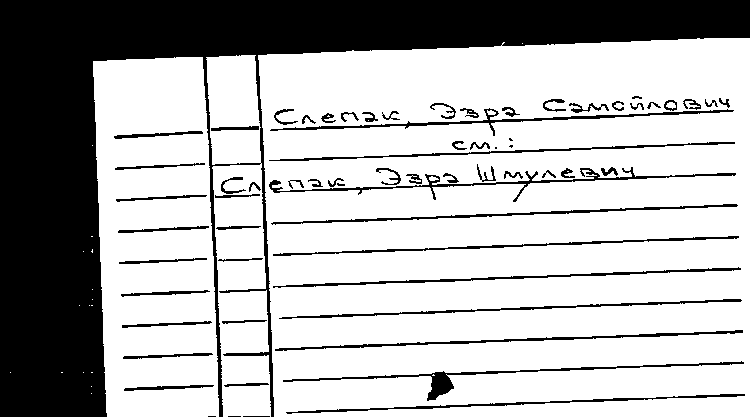 Слепак, Эзра Самойлович
см.:
Слепак, Эзра Шмулевич